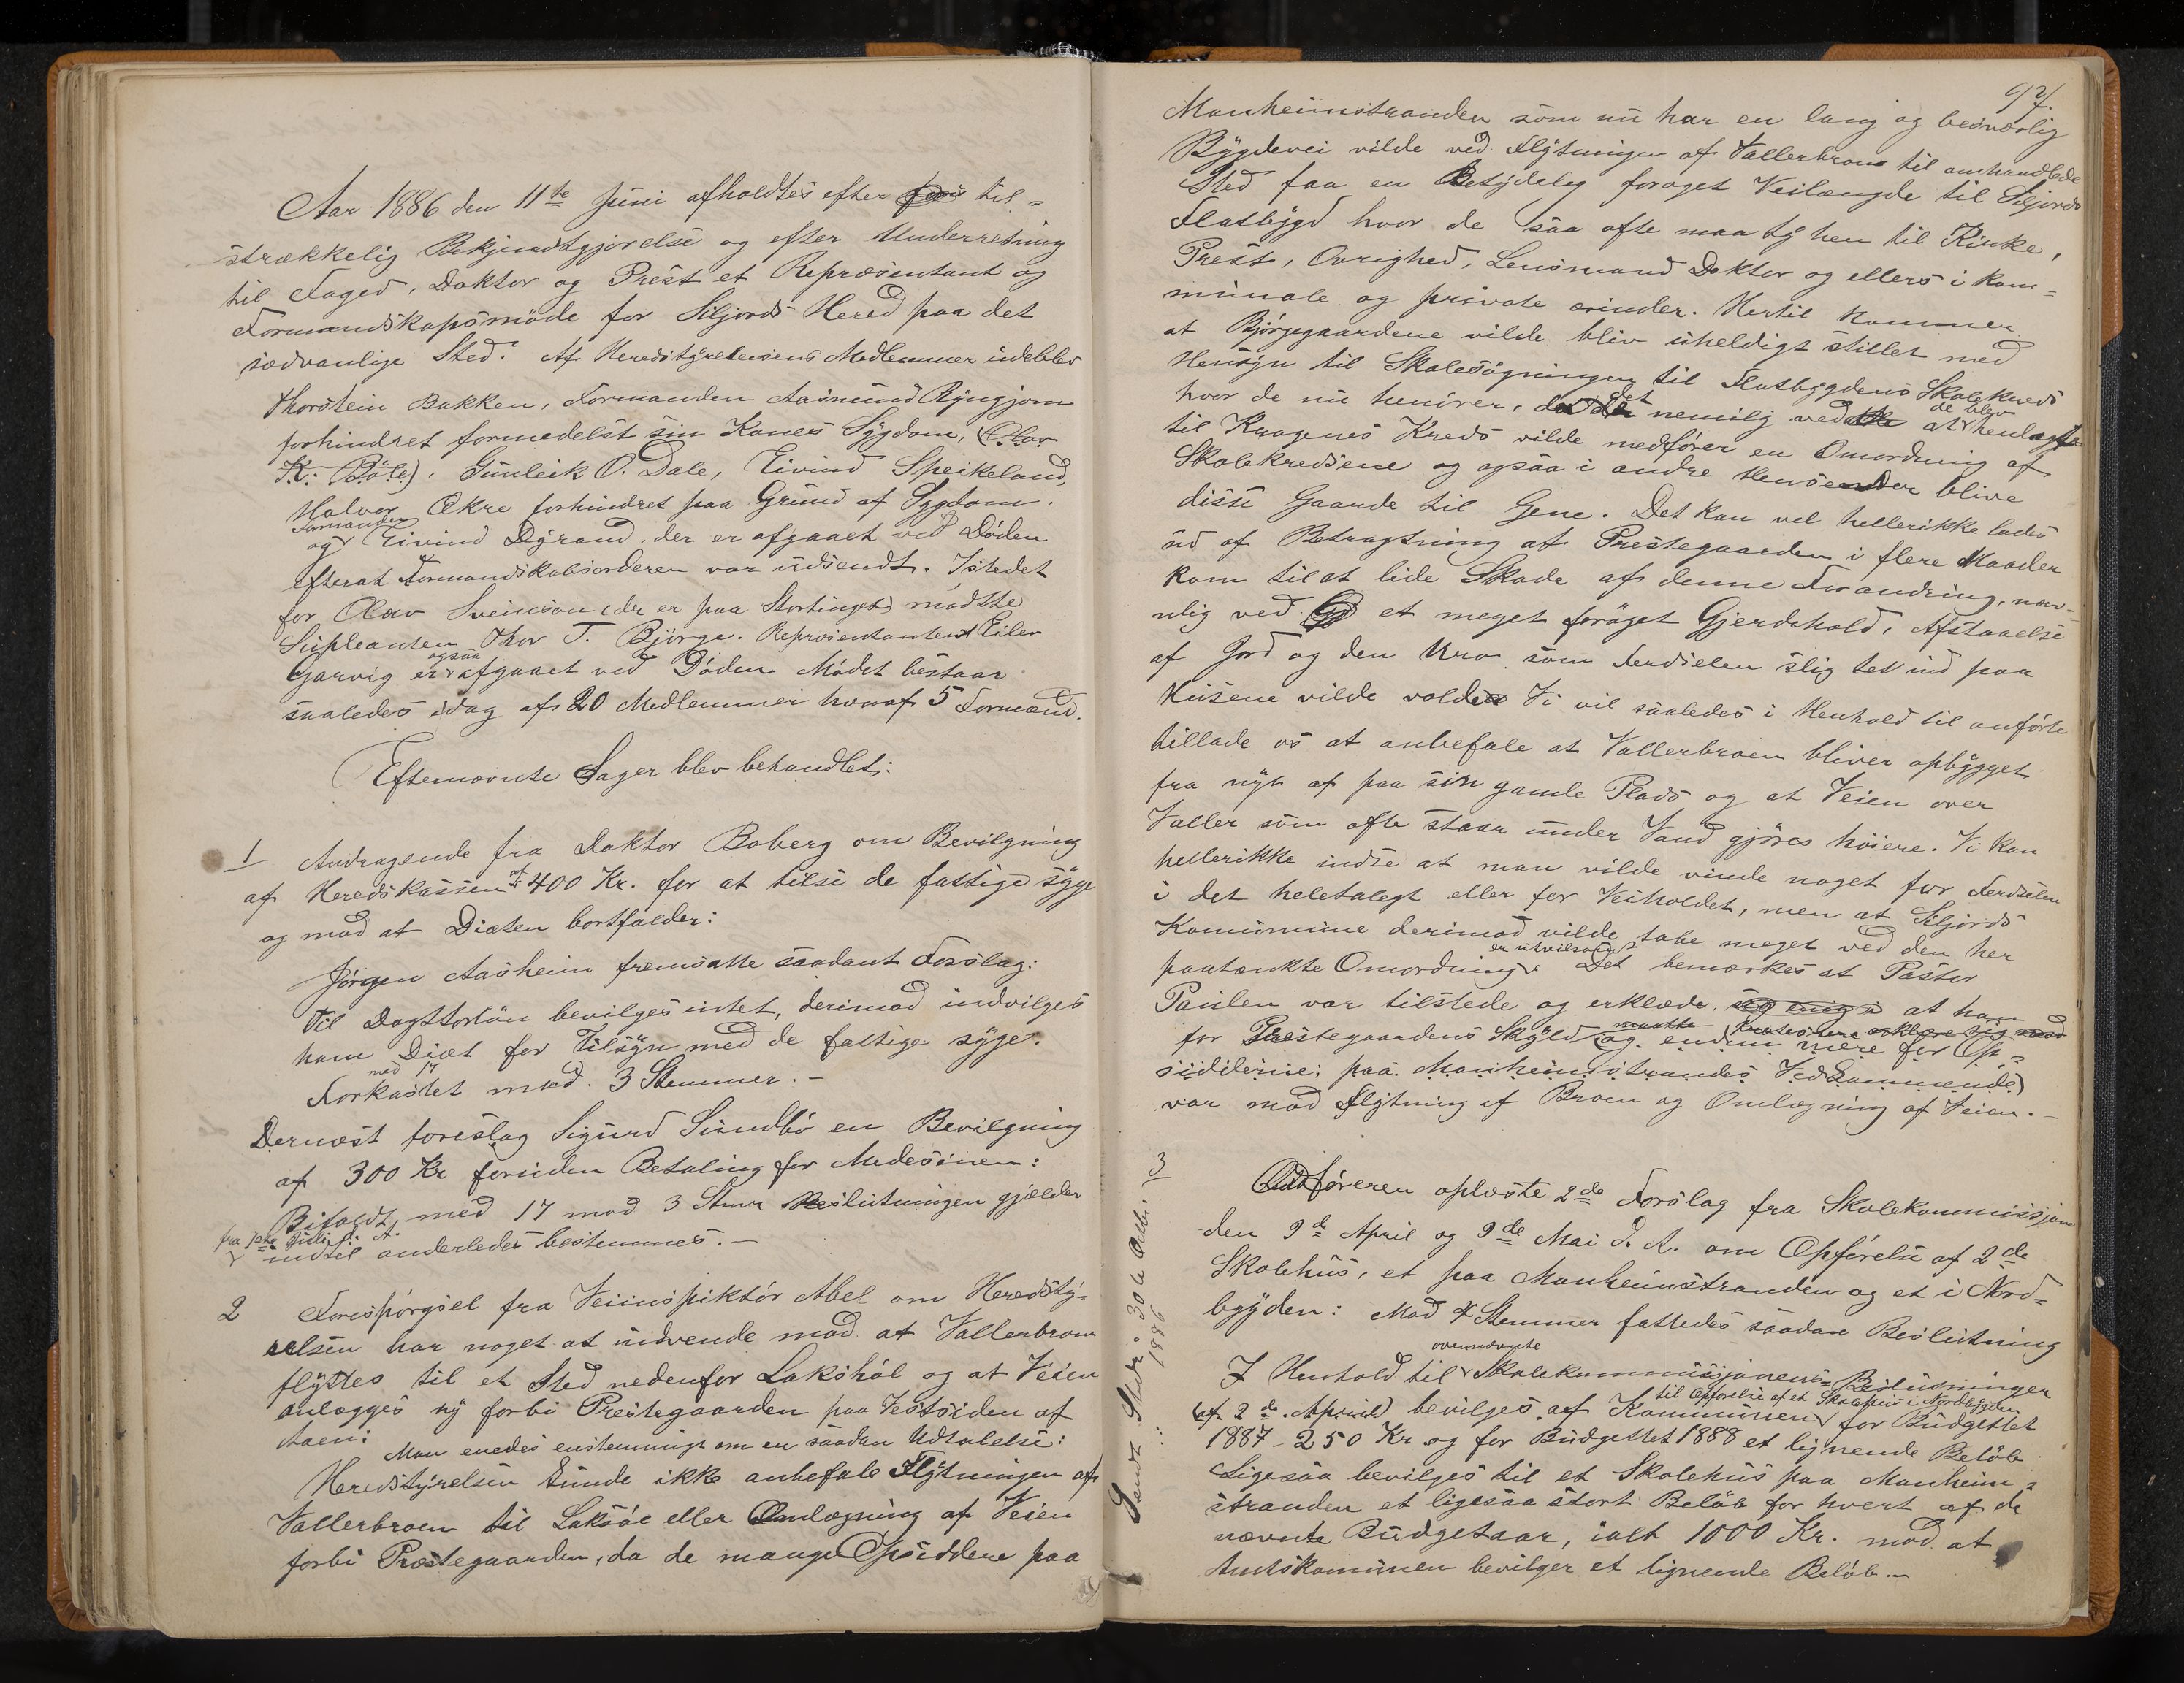 Aar 1886 den 11te Juni afholdtes efter til=
strækkelig Bekjendtgjørelse og efter Underretning
til Foged, Doktor og Prest et Repræsentant og
Formandskapsmöde for Siljords Hered paa det
sædvanlige Sted. Af Heredstyrelsens Medlemmer udeblev
Thorstein Bakken, Formanden Aasmund Ryngjom
forhindret formedelst sin Kones Sygdom, (Olav
K. Böle), Gunleik O. Dale, Eivind Speikeland,
Halvor Ækre forhindret paa Grund af Sygdom.
Formanden
og Eivind Dyrand, der er afgaaet ved Döden
efterat Formandskabsorderen var udsendt. Istedet
for Olav Sveinson (der er paa Stortinget) mödtte
Supleanten Thor T. Bjørge. Repræsentanten Eilev
ogsaa
Garvig er afgaaet ved Döden Mödet bestaar
saaledes idag af 20 Medlemmer hvoraf 5 Formænd.
Efternævnte Sager blev behandlet:
1 Andragende fra Doktor Boberg om Bevilgning
af Heredskassen af 400 Kr. for at tilse de fattige syge
og mod at Diæten bortfalder:
Jörgen Aasheim fremsatte saadant Forslag:
Til Dogttorlön bevilges intet, derimod indvilges
ham Diæt for Tilsyn med de fattige syge.
med 17
Forkastet mod 3 Stemmer.-
Dernæst foreslog Sigurd Sundbö en Bevilgning
af 300 Kr foruden Betaling for Medesinen:
Bifaldt med 17 mod 3 Stmr Beslutningen gjælder
fra 1ste Juli d. A.
indtil anderledes bestemmes.-
2 Forespörgsel fra Veiinspiktör Abel om Heredsty=
relsen har noget at indvende mod at Vallerbroen
flyttes til et Sted nedenfor Lakshöl og at Veien
anlægges ny forbi Prestegaarden paa Vestsiden af
Aaen: Man enedes enstemmigt om en saadan Udtalelse:
Heredstyrelsen kunde ikke anbefale Flytningen af
Vallerbroen til Laksöl eller Omlægning af Veien
forbi Præstegaarden, da de mange Opsiddere paa
97.
Manheimstranden som nu har en lang og besværlig
Bygdevei vilde ved Flytningen af Vallerbroen til omhandlede
Sted faa en Betydeleg foröget Veilængde til Siljords
Flatbygd hvor de saa ofte maa ty hen til Kirke,
Prest, Ovrighed, Lensmand Doktor og ellers i kom=
munale og private ærinder. Hertil kommer
at Bjørgegaardene vilde bliv uheldigt stillet med
Hensyn til Skolesögningen til Flatbygdens Skolekreds
det de blev
hvor de nu henörer, da nemlig ved at henlagte
til Kragenes Kreds vilde medfører en Omordning af
Skolekredsene og ogsaa i andre Henseender blive
disse Gaarde til Gene. Det kan vel hellerikke lades
ud af Betragtning at Prestegaarden i flere Maader
kom til at lide Skade af denne Forandring, nav=
nlig ved et meget foröget Gjerdehold, Afstaaelse
af Jord og den Uro som Ferdselen slig tet ind paa
Husene vilde volde Vi vil saaledes i Henhold til anförte
tillade os at anbefale at Vallerbroen bliver opbygget
fra nyt af paa sin gamle Plads og at Veien over
Valler som ofte staar under Vand gjöres höiere. Vi kan
hellerikke indse at man vilde vinde noget for Ferdselen
i det heletalegt eller for Veiholdet, men at Siljords
Kommune derimod vilde tabe meget ved den her
er utvilsomt
paatænkte Omordning. Det bemærkes at Pastor
Paulen var tilstede og erklæde, seg enig i at han
for Prestegaardens Skyld maatte protestere erklære sig mod
(og endnu mere for Op=
sidderne paa Manheimstrandes Vedkommende)
var mod Flytning af Broen og Omlægning af Veien.-
3 Ordföreren oplæste 2de Forslag fra Skolekommissjonen
den 9de April og 9de Mai d. A. om Opförelse af 2de
Skolehus, et paa Manheimstranden og et i Nord=
bygden: Mod 4 Stemmer fattedes saadan Beslutning
ovennævnte
I Henhold til Skolekommissjonens Beslutninger
til Opförelse af et Skolehus i Nordbygden
(af 2de April) bevilges af Kommunen for Budgettet
1887 - 250 Kr og for Budgettet 1888 et lignende Belöb
Ligesaa bevilges til et Skolehus paa Manheim=
stranden et ligesaa stort Belöb for hvert af de
nævnte Budgetaar, ialt 1000 Kr. mod at
Amtskommunen bevilger et lignende Belöb.-
1886